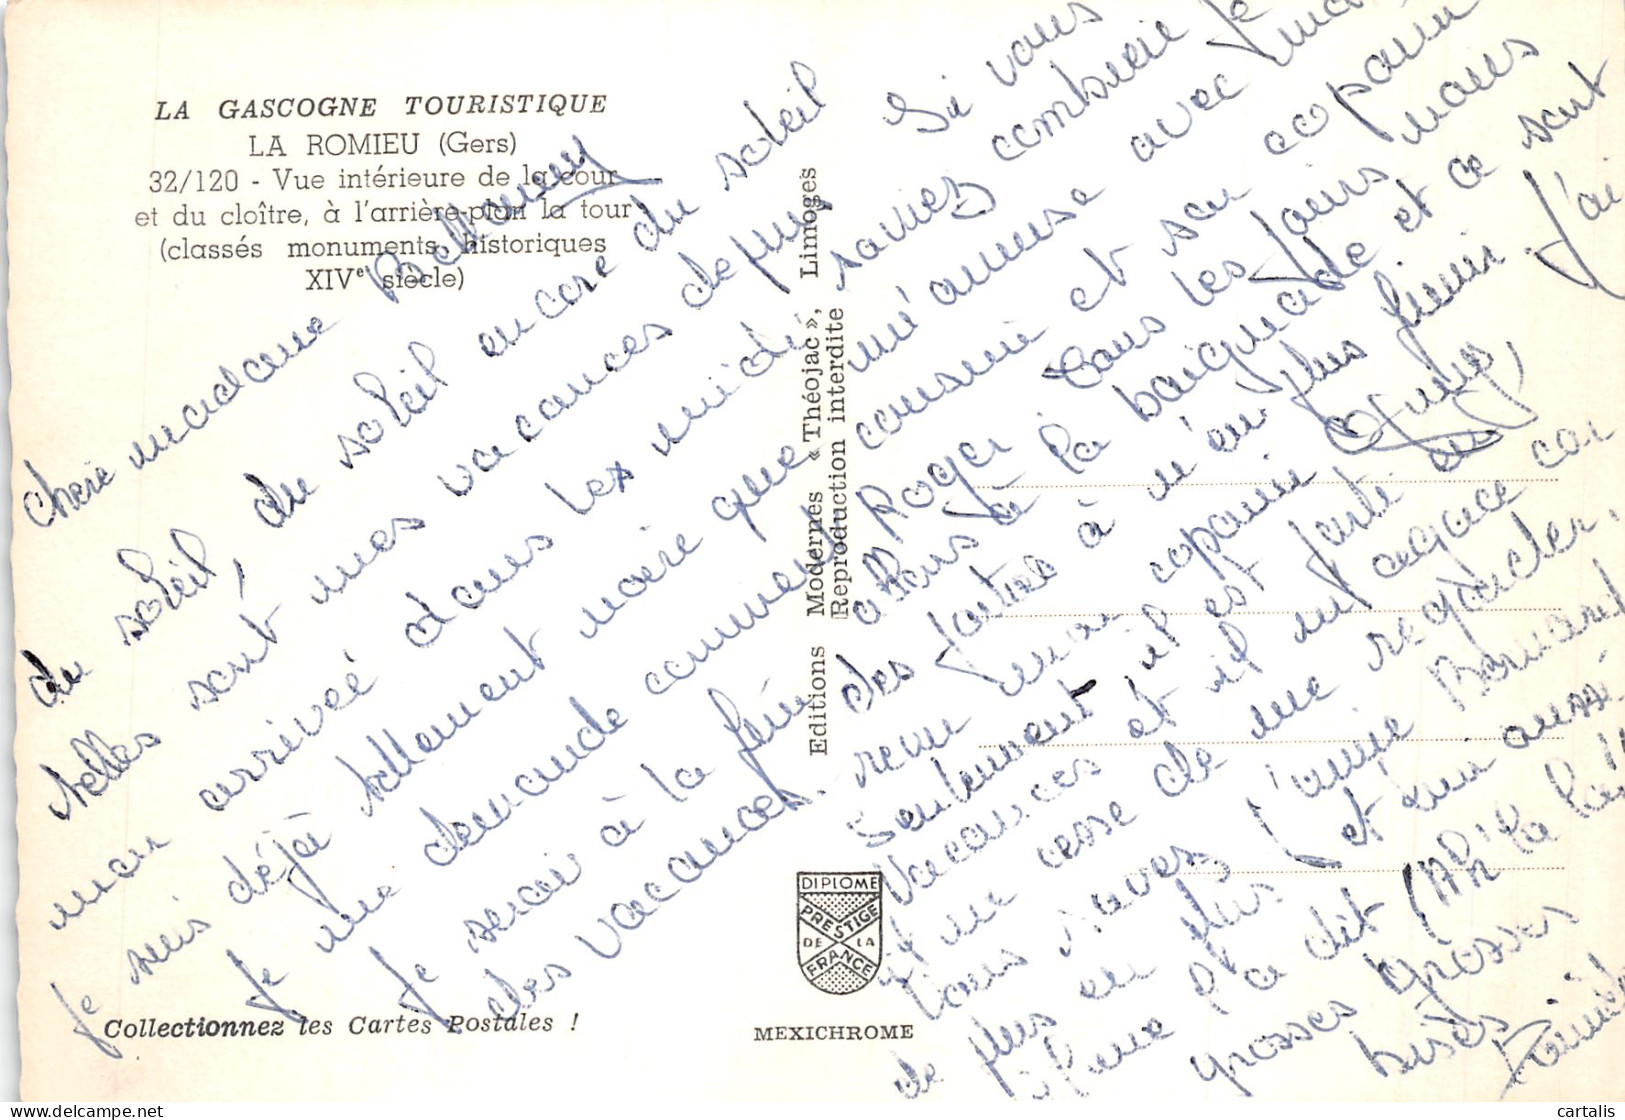 LA GASCOGNE TOURISTIQUE
LA ROMIEU (Gers)
32/120 - Vue intérieure de la cour
et du cloître, à l'arrière-plan la tour
(classés monuments historiques
XIVe siècle)
chere madame Bellamy
du soleil, du soleil encore du soleil
telles sont mes vacances depuis
mon arriveé dans les midi
Je suis déjà tellement noire que
Je me demande comment
Je serai à la fin
des vacances.
Si vous
saviez combien je
m'amuse avec ma
cousine et son copain
Roger Tous les Jours nous
allons à la baignade et ce sont
des parties à n'en plus finir. J'ai
revu mon copain
seulement il est parti en
vacances et il m'agace car
il ne cesse de me regarder.
Vous savez l'amie Bernard
de plus en plus et lui aussi
il me l'a dit (Ah! la la!!
grosses grosses
bises
Editions Modernes « Théojac », Limoges
Reproduction interdite
DIPLOME
PRESTIGE
DE LA
FRANCE
MEXICHROME
Collectionnez les Cartes Postales !
cartalis